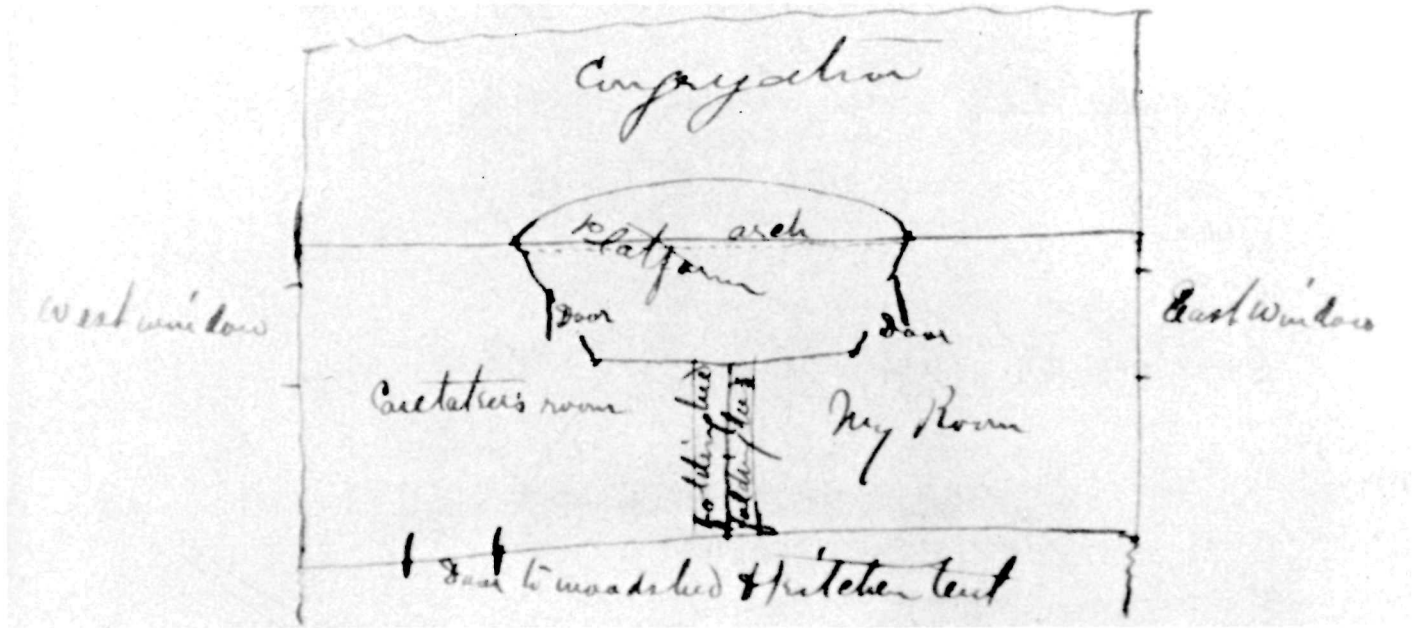 Congregation
arch
Platform
West window
East window
Door
Door
Caretaker's room
My Room
folding bed
folding bed
Door to woodshed & kitchen tent